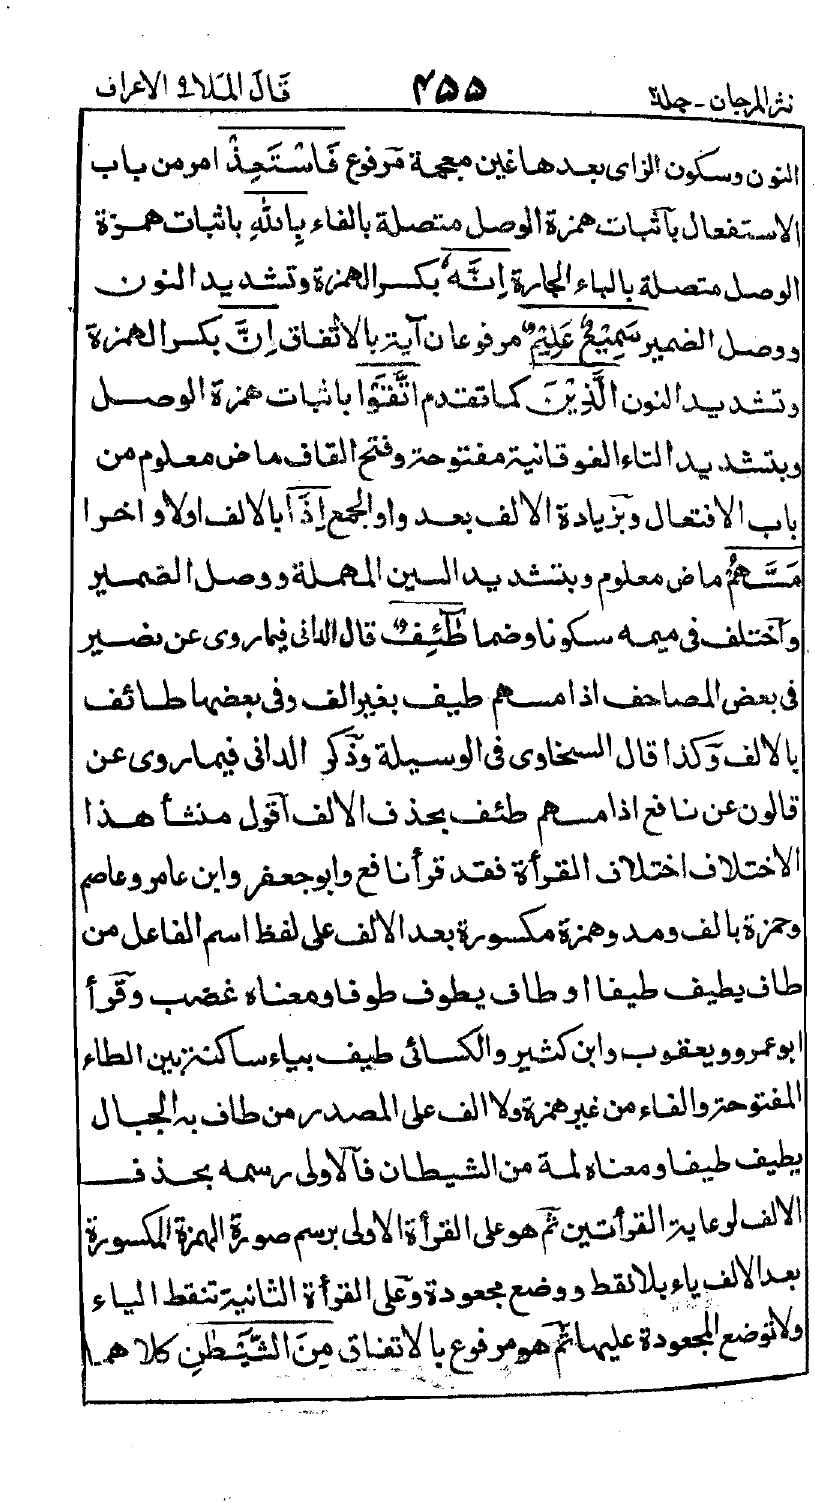 نثر المرجان - جلد ٢ ٤٥٥ قَالَ المَلَا ٩ الاعراف
النون وسكون الزاى بعدها غين معجمة مرفوع فَاسْتَعِذْ امر من باب
الاستفعال بآثبات همزة الوصل متصلة بالفاء بِاللهِ باثبات همزة
الوصل متصلة بالباء الجارة اِنَّهٗ بكسر الهمزة وتشديد النون
ووصل الضمير سَمِيْعٌ عَلِيْمٌ مرفوعان آية بالاتفاق اِنَّ بكسر الهمزة
وتشديد النون الَّذِيْنَ كما تقدم اتَّقَوْا باثبات همزة الوصل
وبتشديد التاء الفوقانية مفتوحة وفتح القاف ماض معلوم من
باب الافتعال وبزيادة الالف بعد واو الجمع اِذَا بالالف اولا واخرا
مَسَّهُمْ ماض معلوم وبتشديد السين المهملة ووصل الضمير
وآختلف فى ميمه سكونا وضما طٰٓئِفٌ قال الدانى فيما روى عن نصير
فى بعض المصاحف اذا مسهم طيف بغير الف وفى بعضها طائف
بالالف وكذا قال السخاوى فى الوسيلة وذكر الدانى فيما روى عن
قالون عن نافع اذا مسهم طئف بحذف الالف آقول منشأ هذا
الاختلاف اختلاف القرأة فقد قرأ نافع وابو جعفر وابن عامر وعاصم
وحمزة بالف ومد وهمزة مكسورة بعد الالف على لفظ اسم الفاعل من
طاف يطيف طيفا او طاف يطوف طوفا ومعناه غضب وقرأ
ابو عمرو ويعقوب وابن كثير والكسائى طيف بياء ساكنة بين الطاء
المفتوحة والفاء من غير همزة ولا الف على المصدر من طاف به الجبال
يطيف طيفا ومعناه لمة من الشيطان فآلاولى رسمه بحذف
الالف لرعاية القرأتين ثم هو على القرأة الاولى برسم صورة الهمزة المكسورة
بعد الالف ياء بلا نقط ووضع مجعودة وعلى القرأة الثانية تنقط الياء
ولا توضع المجعودة عليها ثم هو مرفوع بالاتفاق مِنَ الشَّيْطٰنِ كلاهما